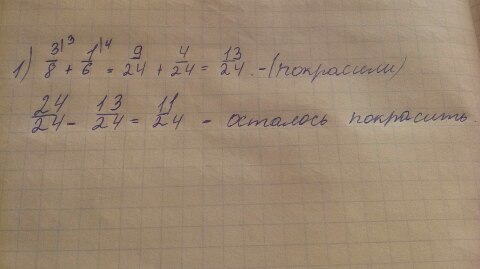 1) 3|3/8 + 1|4/6 = 9/24 + 4/24 = 13/24. - (покрасили)
24/24 - 13/24 = 11/24 - осталось покрасить.